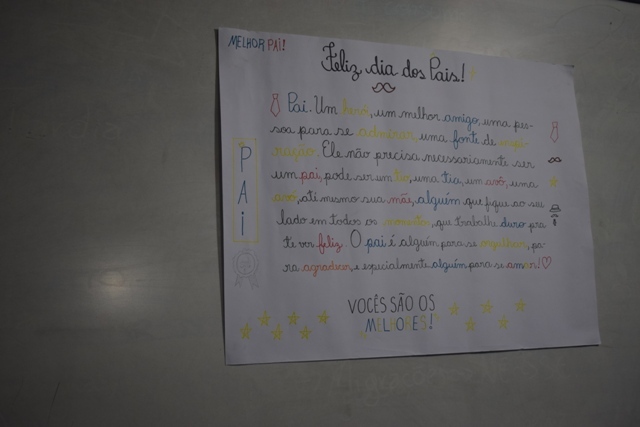 MELHOR PAI!
Feliz dia dos Pais!
Pai. Um herói, um melhor amigo, uma pes-
soa para se admirar, uma fonte de inspi-
ração. Ele não precisa necessariamente ser
um pai, pode ser um tio, uma tia, um avô, uma
avó, até mesmo sua mãe, alguém que fique ao seu
lado em todos os momentos, que trabalhe duro pra
te ver feliz. O pai é alguém para se orgulhar, pa-
ra agradecer, e especialmente alguém para se amar!
PAI
VOCÊS SÃO OS
MELHORES!